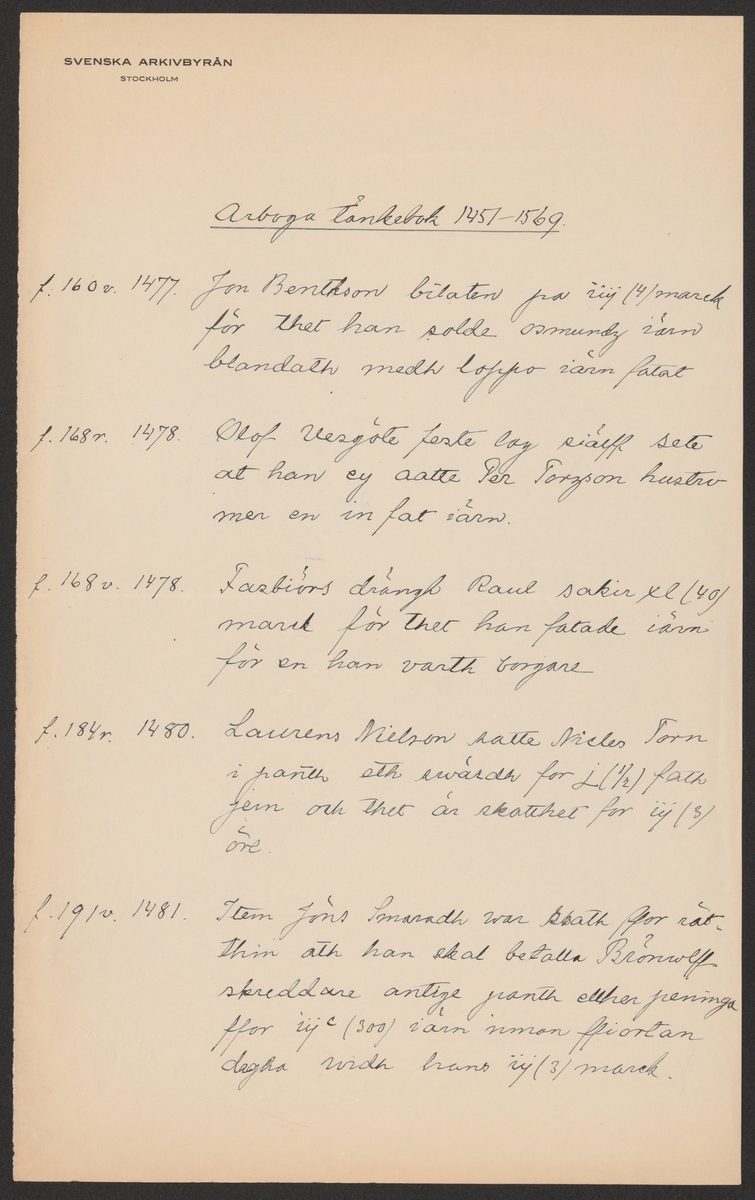 SVENSKA ARKIVBYRÅN
STOCKHOLM
Arboga Tänkebok 1451-1569.
f. 160 v. 1477. Jon Benthson bilaten pa iiij (4) marck
för thet han solde osmundz iärn
blandath medh loppo iärn fatat
f. 168 r. 1478. Olof Vesgöte feste lag siälff sete
at han ey aatte Per Torzson hustrv
mer en in fat iärn.
f. 168 v. 1478. Fasbiörs drängh Raul sakir xl (40)
marck för thet han fatade iärn
för en han varth borgare
f. 184 r. 1480. Laurens Nielson satte Nicles Torn
i panth eth swärdh for j (1/2) fath
jern och thet är skatthet for iij (3)
öre.
f. 191 v. 1481. Item Jöns Smaradh war skath ffor rät-
thin ath han skal betalla Brönwlff
skreddare antige panth ellher peninga
ffor iijc (300) iärn innan ffiortan
dagha widh hans iij (3) marck.